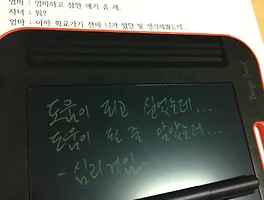 엄마 : 엄마하고 잠깐 얘기 좀 해.
자녀 : 뭐?
엄마 : 아까 학교가기 전에 니가 했던 말 생각해봤는데...
도움이 되고 싶었는데...
도움이 될 줄 알았는데...
-심리게임-